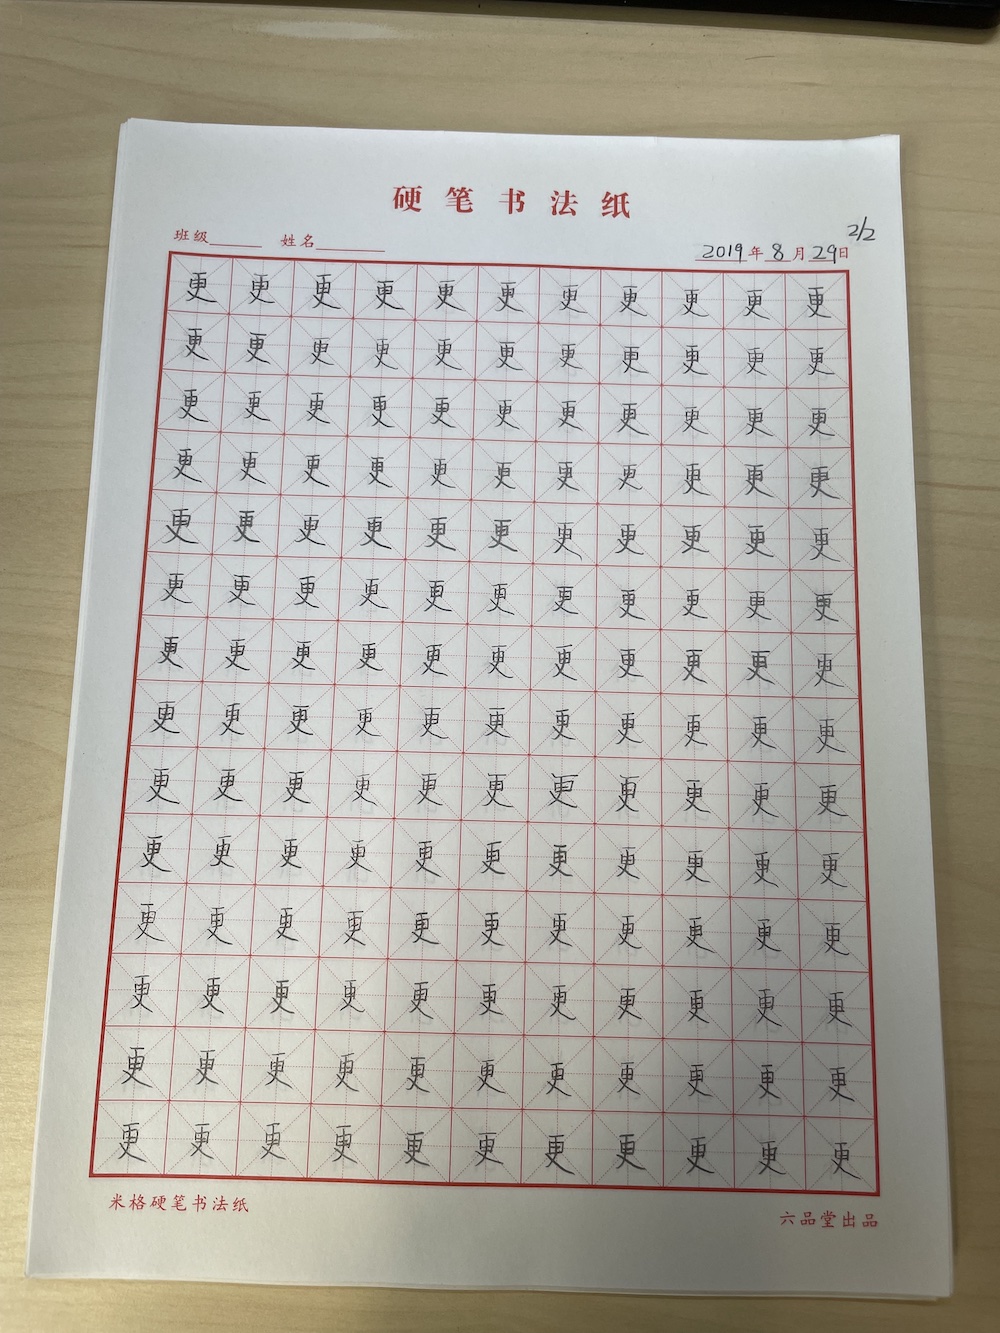 硬笔书法纸
2/2
班级 姓名 2019年8月29日
更更更更更更更更更更更
更更更更更更更更更更更
更更更更更更更更更更更
更更更更更更更更更更更
更更更更更更更更更更更
更更更更更更更更更更更
更更更更更更更更更更更
更更更更更更更更更更更
更更更更更更更更更更更
更更更更更更更更更更更
更更更更更更更更更更更
更更更更更更更更更更更
更更更更更更更更更更更
更更更更更更更更更更更
米格硬笔书法纸
六品堂出品